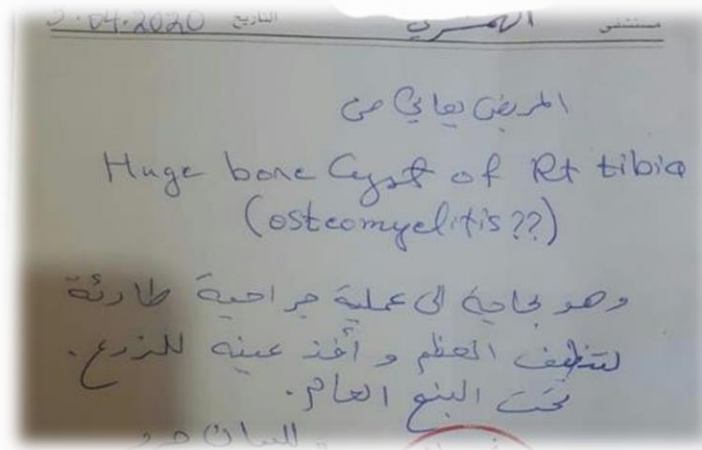 مستشفى الهمشري التاريخ 3.04.2020
المريض يعاني من
Huge bone Cyst of Rt tibia
(osteomyelitis??)
وهو بحاجة الى عملية جراحية طارئة
لتنظيف العظم و أخذ عينه للزرع.
تحت البنج العام.
للبيان حرر